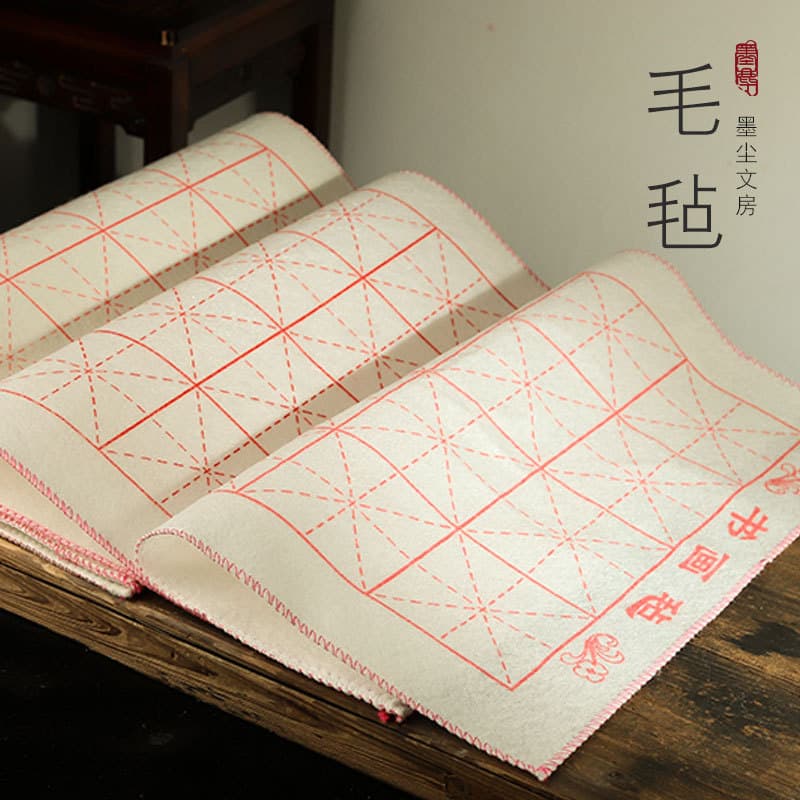 毛毡
墨尘文房
墨尘
书画毡